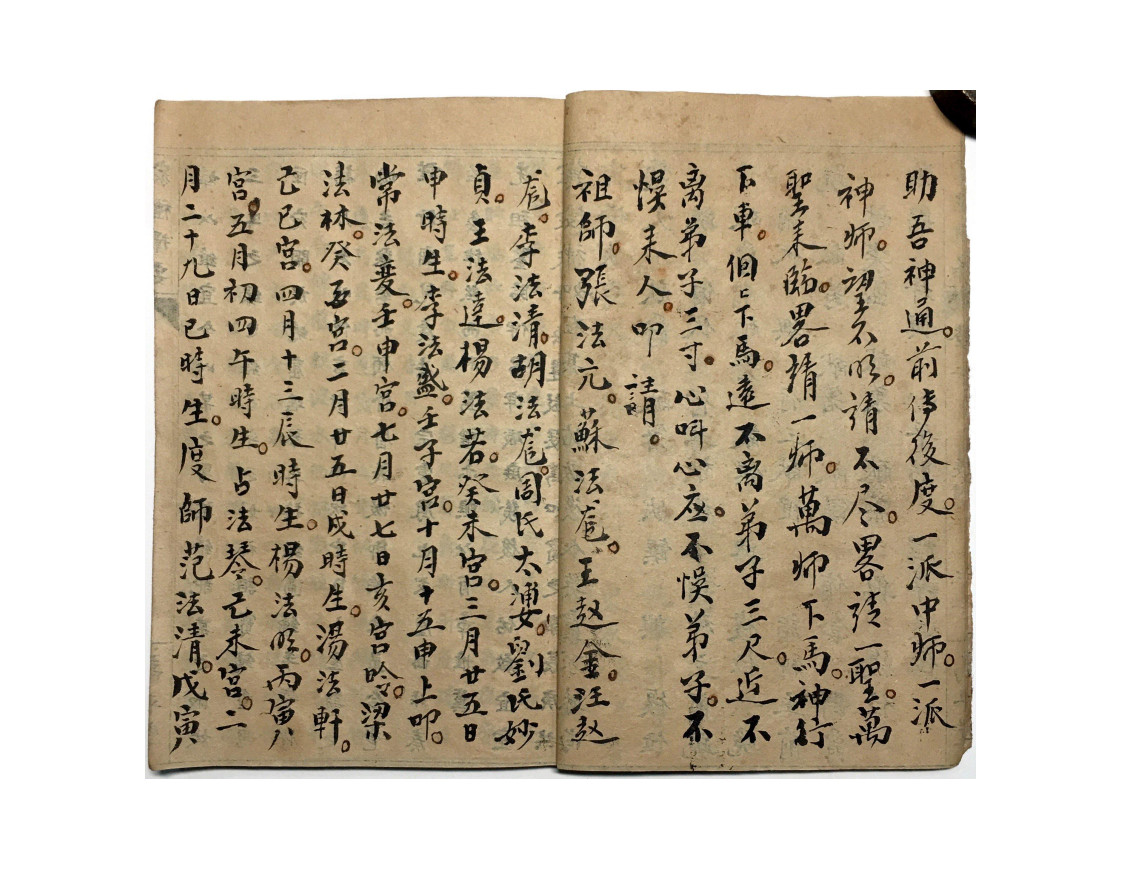 助吾神通。前傳後度。一派中师。一派
神师。望不明。請不尽。畧請一聖。萬
聖未臨。畧請一师。萬师下馬。神行
下車。個〻下馬。遠不离弟子三尺。近不
离弟子三寸。心叫心应。不悮弟子。不
悮未人。叩 請。
祖師。張法元。蘇法。王赵金。汪赵
李法清。胡法周氏太婆。劉氏妙
貞。王法達。楊法若。癸未宫。三月廿五日
申時生。李法盛。壬子宫。十月十五申上叩。
常法变。壬申宫。七月廿七日亥宫吟。梁
法林。癸丑宫。二月廿五日戌時生。湯法軒。
己巳宫。四月十三辰時生。楊法明。丙寅
宫。五月初四午時生。占法琴。己未宫。二
月二十九日巳時生。度師范法清。戊寅